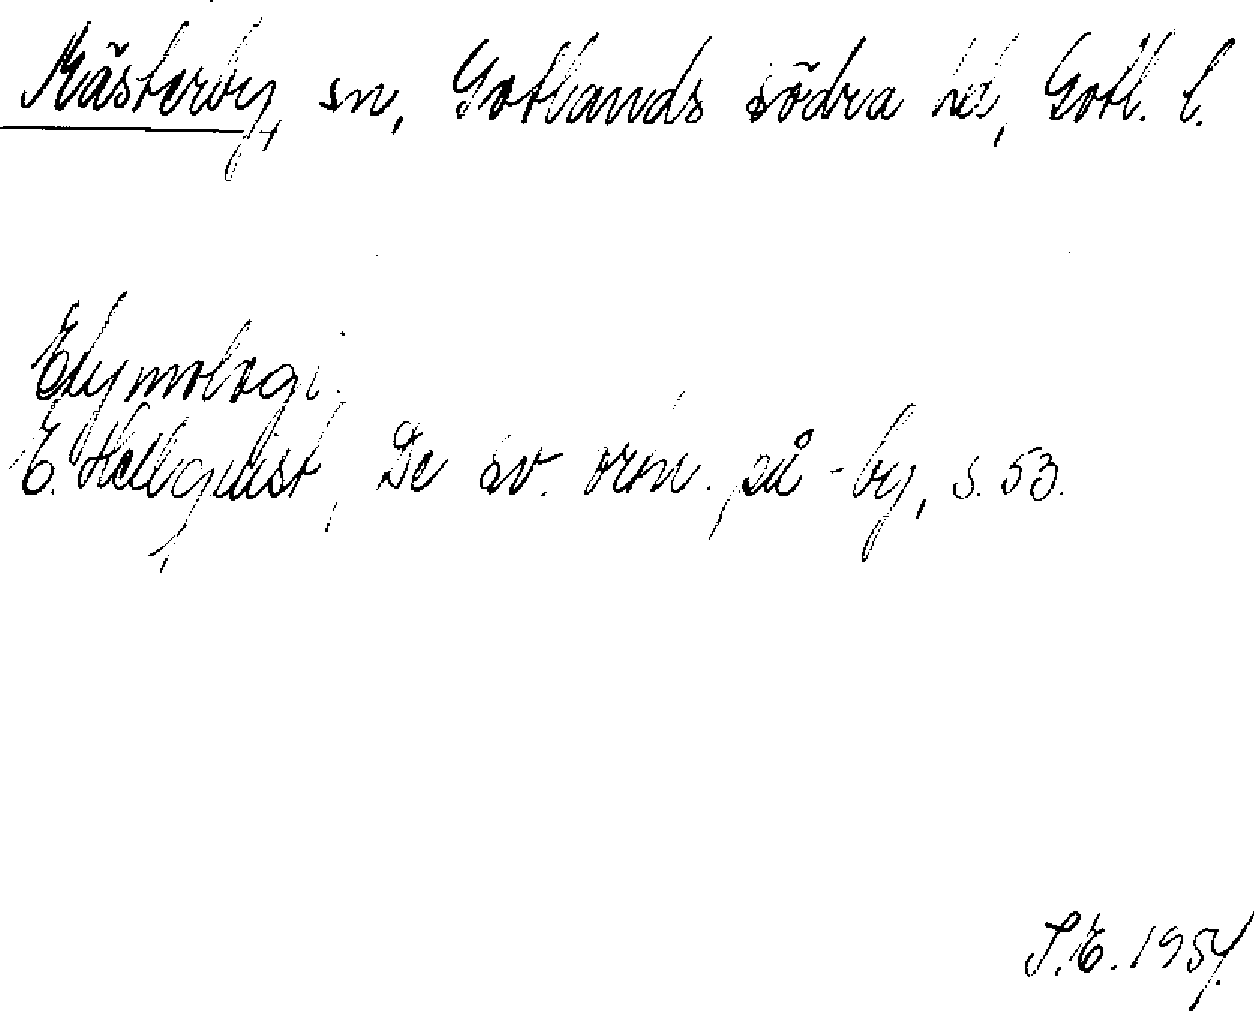 Mästerby, sn, Gotlands södra hd, Gotl. l.
Etymologi.
E. Hellquist, De sv. ortn. på -by, s. 53.
S.E. 1954.